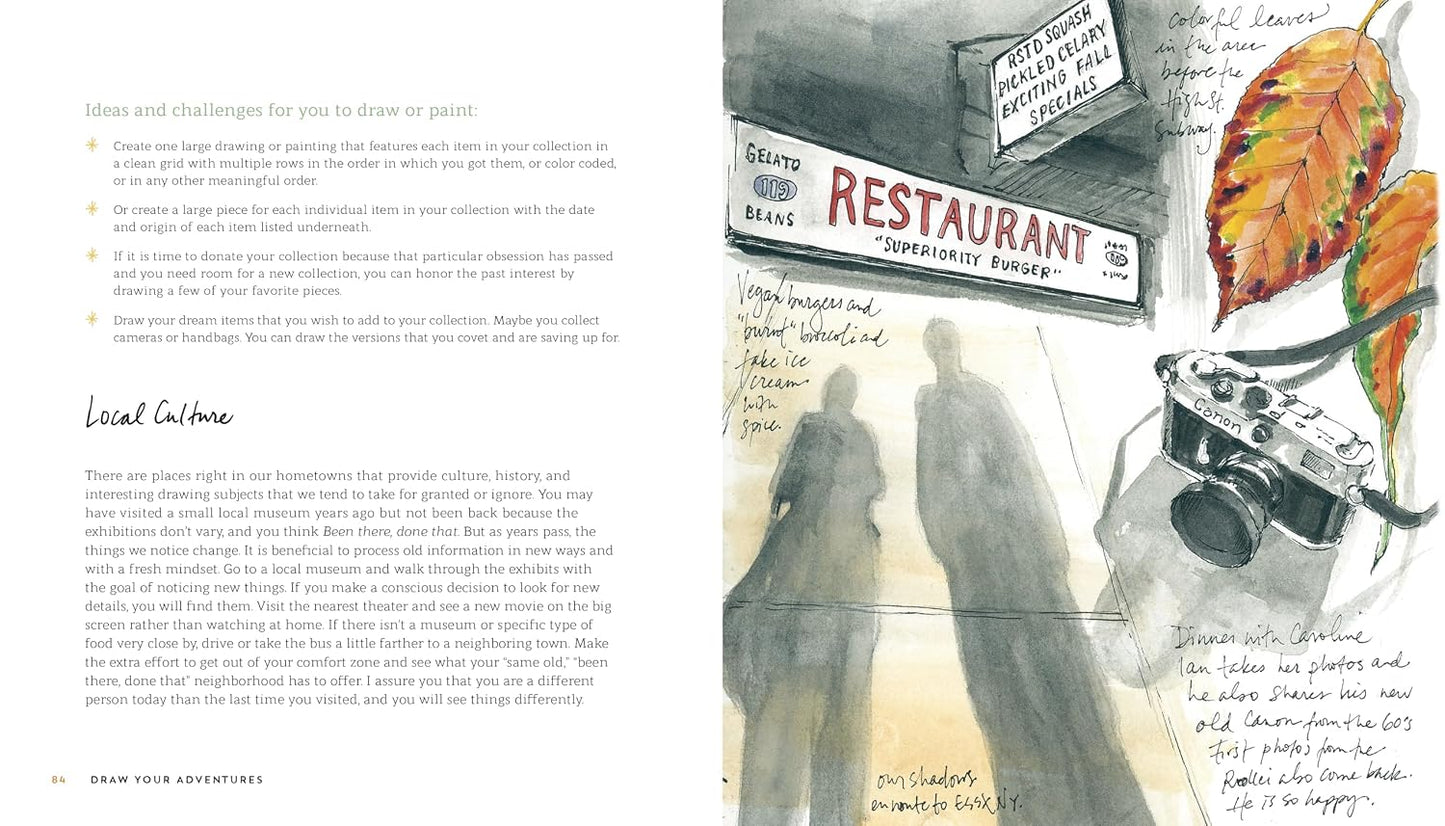 Ideas and challenges for you to draw or paint:
Create one large drawing or painting that features each item in your collection in
a clean grid with multiple rows in the order in which you got them, or color coded,
or in any other meaningful order.
Or create a large piece for each individual item in your collection with the date
and origin of each item listed underneath.
If it is time to donate your collection because that particular obsession has passed
and you need room for a new collection, you can honor the past interest by
drawing a few of your favorite pieces.
Draw your dream items that you wish to add to your collection. Maybe you collect
cameras or handbags. You can draw the versions that you covet and are saving up for.
Local Culture
There are places right in our hometowns that provide culture, history, and
interesting drawing subjects that we tend to take for granted or ignore. You may
have visited a small local museum years ago but not been back because the
exhibitions don't vary, and you think Been there, done that. But as years pass, the
things we notice change. It is beneficial to process old information in new ways and
with a fresh mindset. Go to a local museum and walk through the exhibits with
the goal of noticing new things. If you make a conscious decision to look for new
details, you will find them. Visit the nearest theater and see a new movie on the big
screen rather than watching at home. If there isn't a museum or specific type of
food very close by, drive or take the bus a little farther to a neighboring town. Make
the extra effort to get out of your comfort zone and see what your "same old," "been
there, done that" neighborhood has to offer. I assure you that you are a different
person today than the last time you visited, and you will see things differently.
84 DRAW YOUR ADVENTURES
RSTD SQUASH
PICKLED CELARY
EXCITING FALL
SPECIALS
Colorful leaves
in the area
before the
High St.
Subway.
GELATO
119
BEANS
RESTAURANT
"SUPERIORITY BURGER"
Vegan burgers and
"burnt" broccoli and
fake ice
cream
with
spice.
Canon
Dinner with Caroline
Ian takes her photos and
he also shares his new
old Canon from the 60's
First photos from the
Rollei also come back.
He is so happy.
our shadows
en route to ESSX, NY.